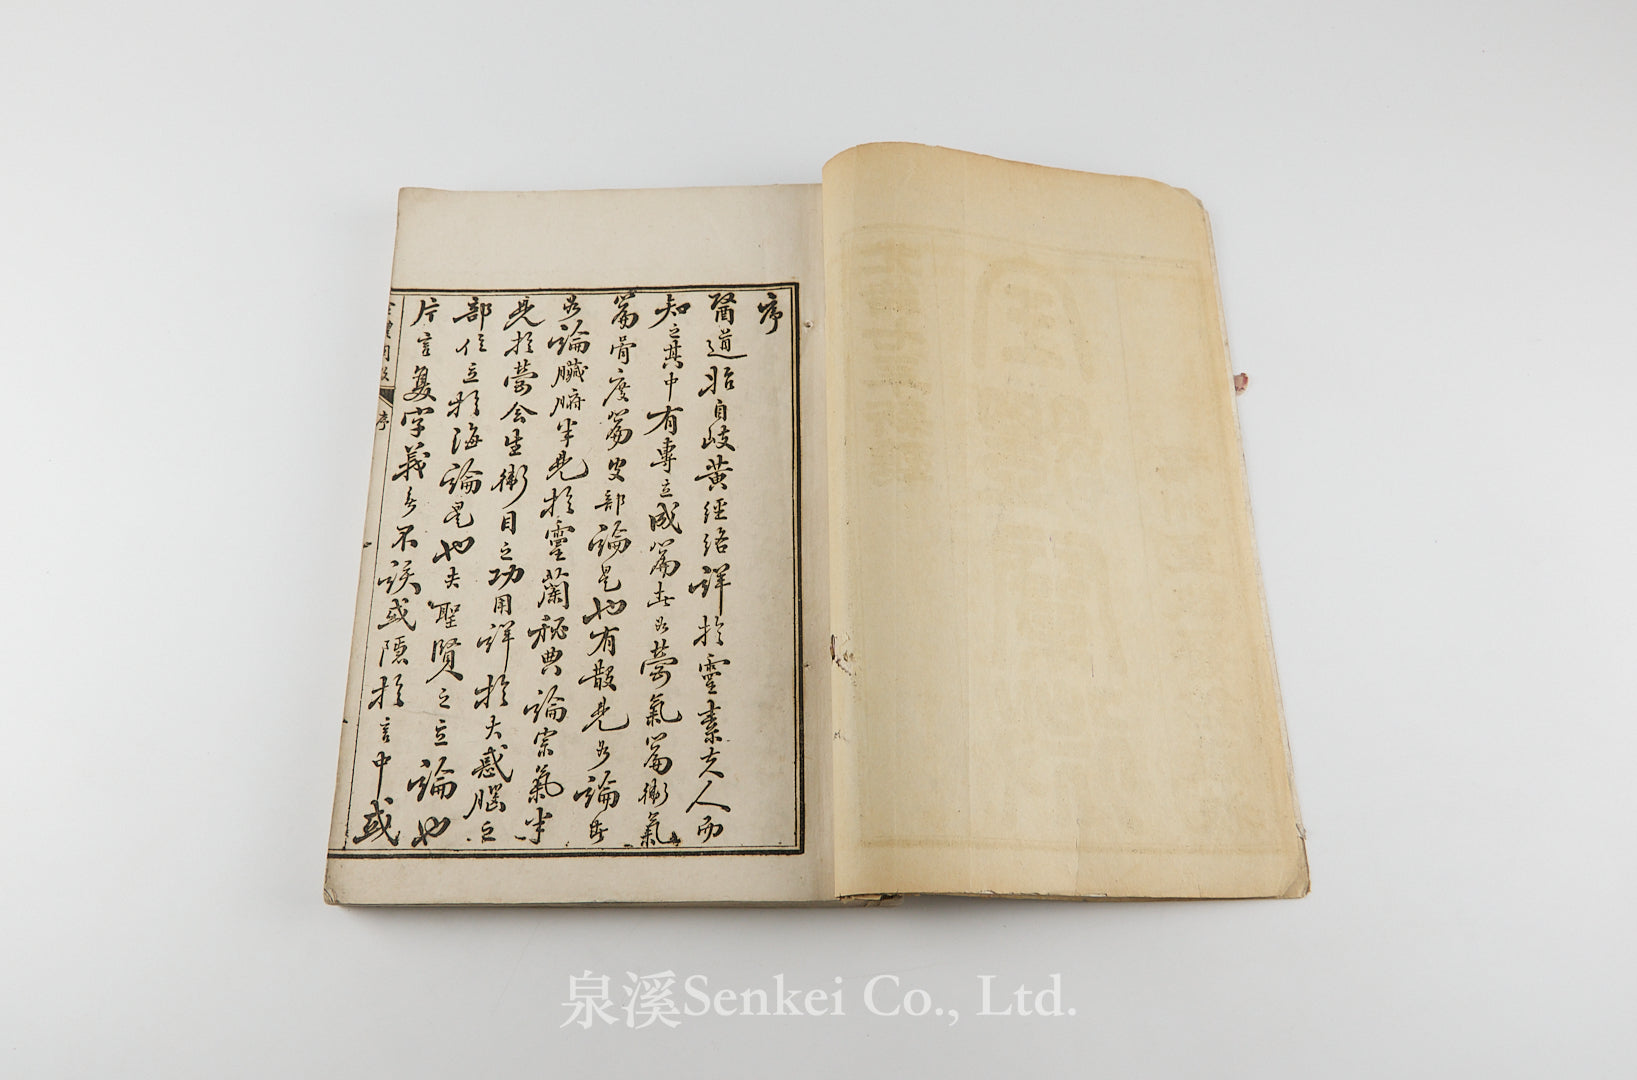 序
醫道昉自岐黃經絡詳於靈素夫人而
知之其中有專立成篇者如營氣篇衛氣
篇骨度篇皮部論是也有散見各論者
如論臟腑半見於靈蘭秘典論宗氣半
見於營衛生會目之功用詳於大惑腦之
部位立於海論是也夫聖賢之立論也
片言隻字義無不該或隱於言中或
序
泉溪Senkei Co., Ltd.